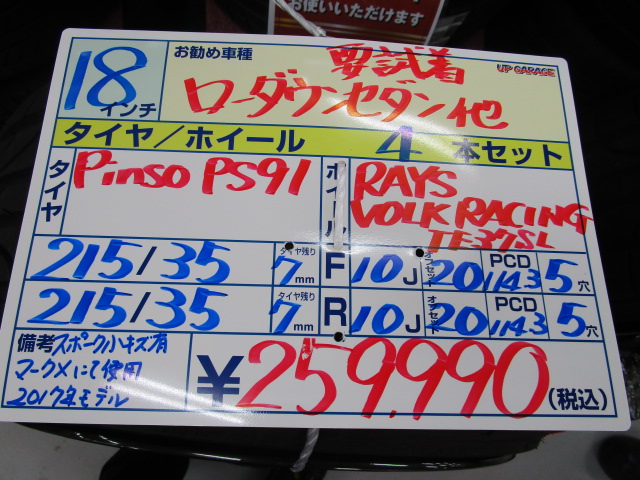 お使いいただけます
18 インチ
お勧め車種 要試着
UP GARAGE
ローダウンセダン他
タイヤ／ホイール 4 本セット
タイヤ Pinso PS91
ホイール RAYS
VOLK RACING
TE37SL
215/35 タイヤ残り 7mm F 10J オフセット 20 PCD 114.3 5穴
215/35 タイヤ残り 7mm R 10J オフセット 20 PCD 114.3 5穴
備考 スポーク小キズ有
マークXにて使用
2017年モデル
¥259,990(税込)